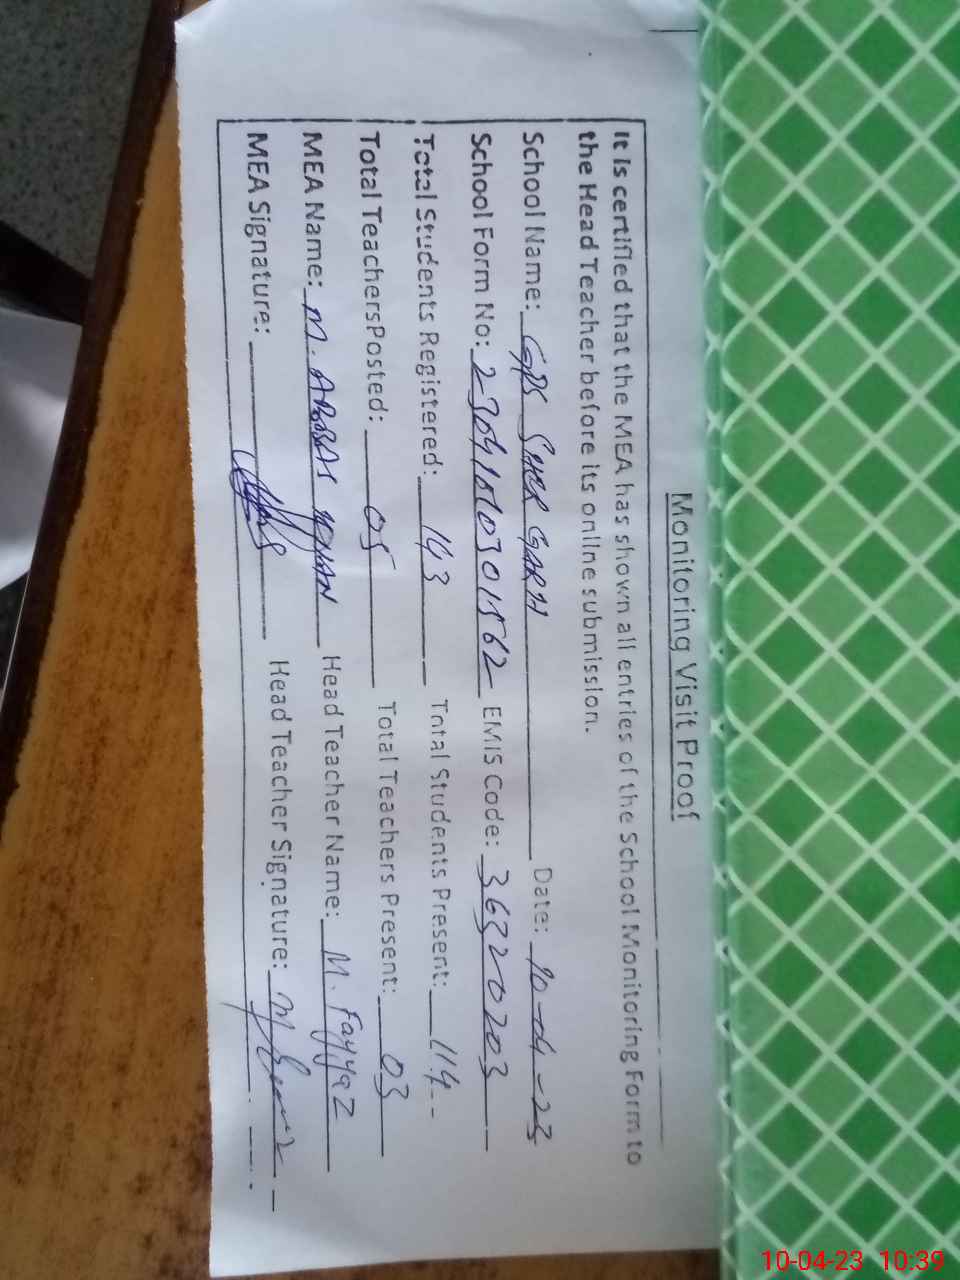 Monitoring Visit Proof
It is certified that the MEA has shown all entries of the School Monitoring Form to
the Head Teacher before its online submission.
School Name: GPS SHER GARH Date: 10-04-23
School Form No: EMIS Code: 36320203
Total Students Registered: 143 Total Students Present: 114
Total Teachers Posted: 05 Total Teachers Present: 03
MEA Name: M. ABBAS Head Teacher Name: M. Fayyaz
MEA Signature: Head Teacher Signature:
10-04-23 10:39